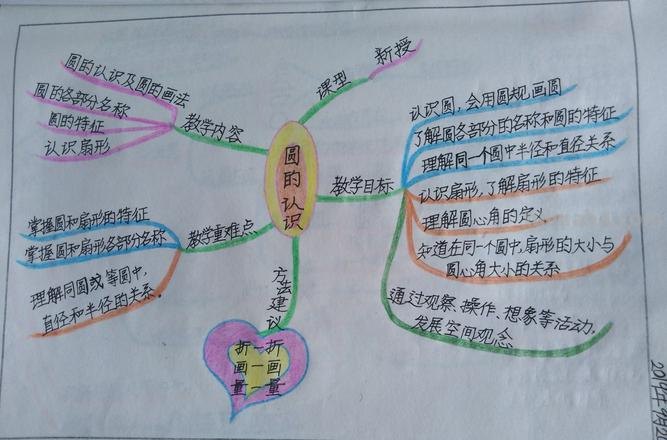 圆的认识
课型
新授
教学内容
圆的认识及圆的画法
圆的各部分名称
圆的特征
认识扇形
教学目标
认识圆，会用圆规，画圆
了解圆各部分的名称和圆的特征
理解同一个圆中半径和直径关系
认识扇形，了解扇形的特征
理解圆心角的定义
知道在同一个圆中，扇形的大小与
圆心角大小的关系
通过观察、操作、想象等活动，
发展空间观念
教学重难点
掌握圆和扇形的特征
掌握圆和扇形各部分名称
理解同圆或等圆中，
直径和半径的关系。
方法建议
折一折
画一画
量一量